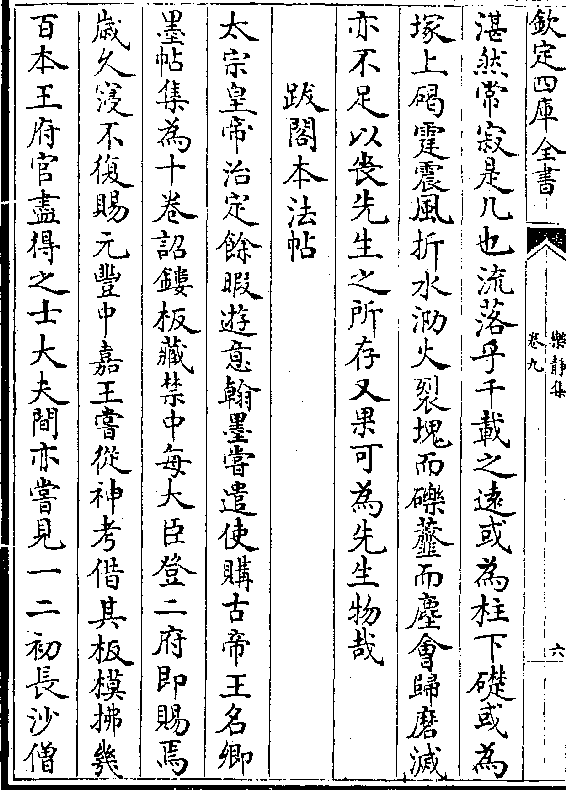 欽定四庫全書
樂靜集
卷九
六
湛然常寂是几也流落乎千載之遠或為柱下礎或為
塚上碣霆震風折水泐火裂塊而礫虀而塵會歸磨滅
亦不足以喪先生之所存又果可為先生物哉
跋閣本法帖
太宗皇帝治定餘暇遊意翰墨嘗遣使購古帝王名卿
墨帖集為十卷詔鏤板藏禁中每大臣登二府即賜焉
歲久寖不復賜元豐中嘉王嘗從神考借其板模拂幾
百本王府官盡得之士大夫間亦嘗見一二初長沙僧